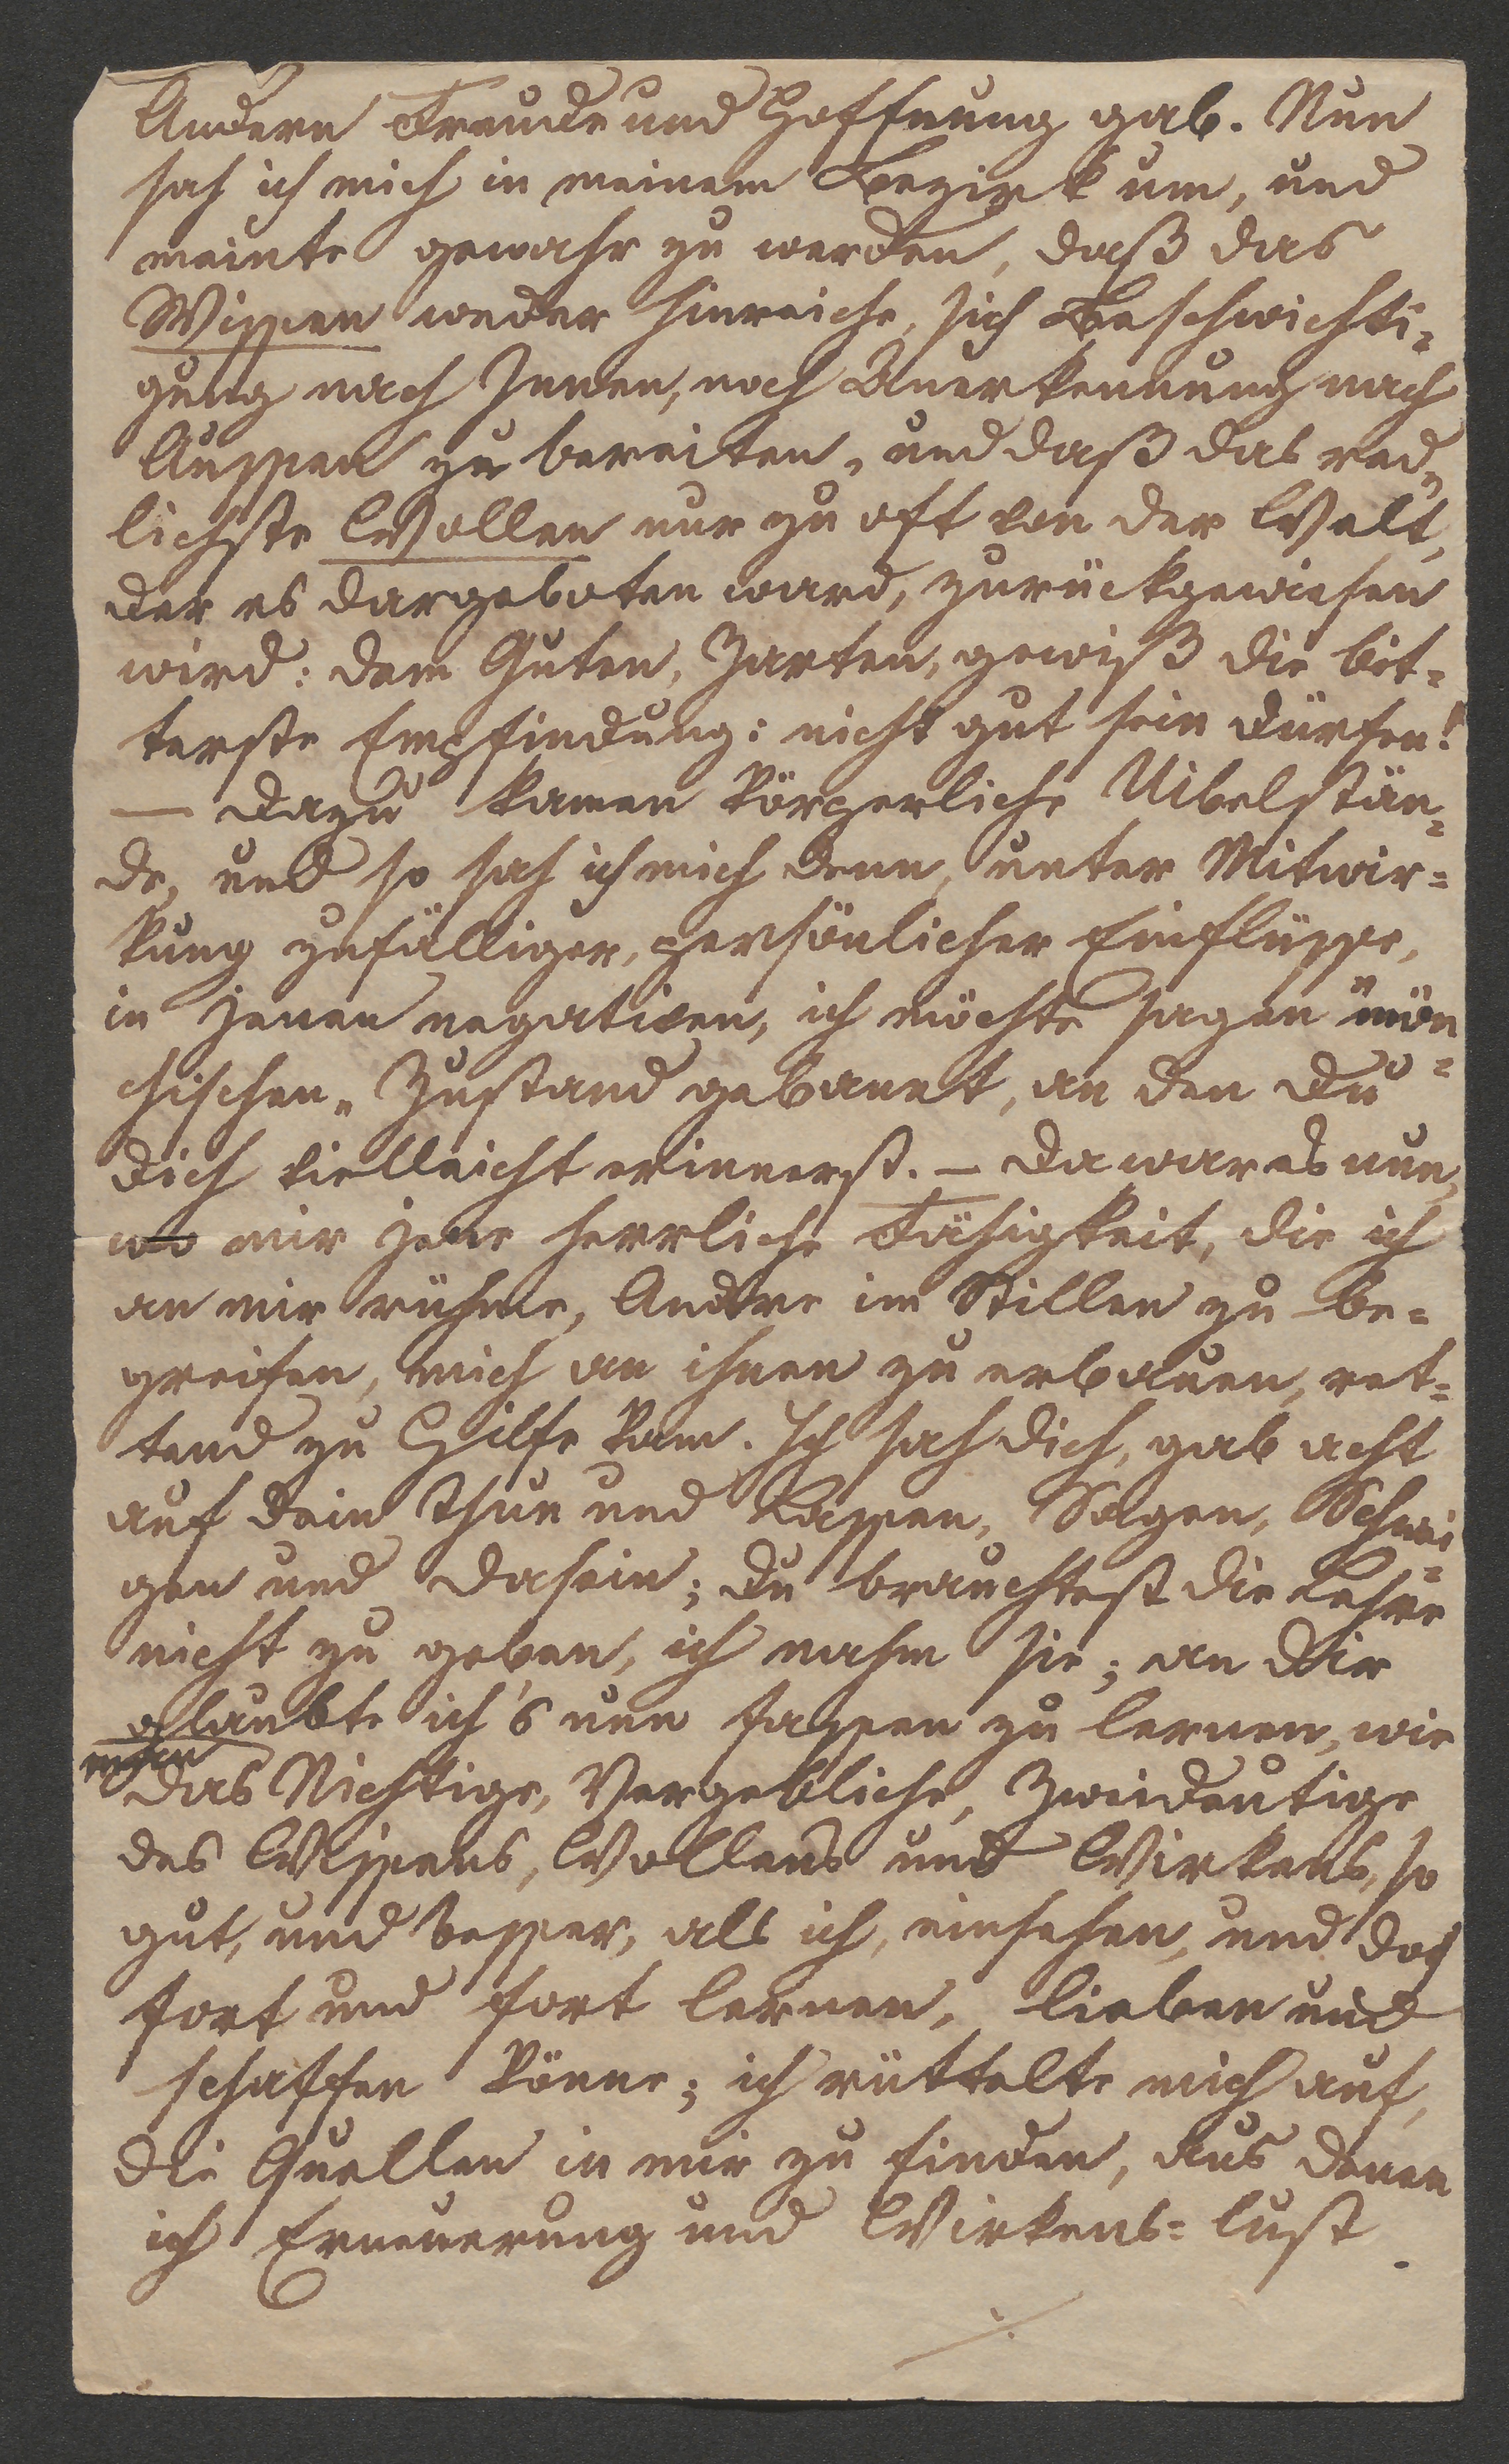 Andern Freude und Hoffnung gab. Nun
sah ich mich in meinem Bezirk um, und
meinte gewahr zu werden, daß das
Wissen weder hinreiche, sich Beschwichti=
gung nach Innen, noch Anerkennung nach
Aussen zu bereiten, und daß das red=
lichste Wollen nur zu oft von der Welt,
der es dargeboten ward, zurückgewiesen
wird: dem Guten, Zarten, gewiß die bit=
terste Empfindung: nicht gut sein dürfen!
— Dazu kamen körperliche Uibelstän=
de, und so sah ich mich denn, unter Mitwir=
kung zufälliger, persönlicher Einflüsse,
in jenen negativen, ich möchte sagen "mön=
chischen" Zustand gebannt, an den Du
Dich vielleicht erinnerst. — Da war es nun,
wo mir jene herrliche Fähigkeit, die ich
an mir rühme, Andre im Stillen zu be=
greifen, mich an ihnen zu erbauen, ret=
tend zu Hilfe kam. Ich sah Dich, gab acht
auf Dein Thun und Lassen, Sagen, Schwei=
gen und Dasein; Du brauchtest die Lehre
nicht zu geben, ich nahm sie; an Dir
glaubte ich's nun fassen zu lernen, wie
man das Nichtige, Vergebliche, Zweideutige
des Wissens, Wollens und Wirkens, so
gut, und besser, als ich, einsehen, und doch
fort und fort lernen, lieben und
schaffen könne; ich rüttelte mich auf,
die Quellen in mir zu finden, aus denen
ich Erneuerung und Wirkens=lust
./.